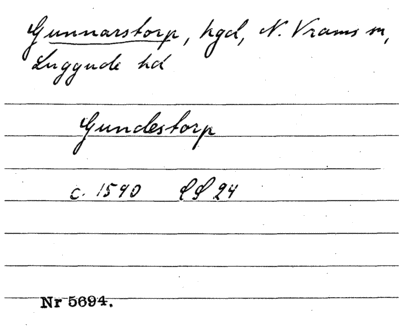 Gunnarstorp, hgd, N. Vrams sn,
Luggude hd
Gundestorp
c. 1590 LL 24
Nr 5694.